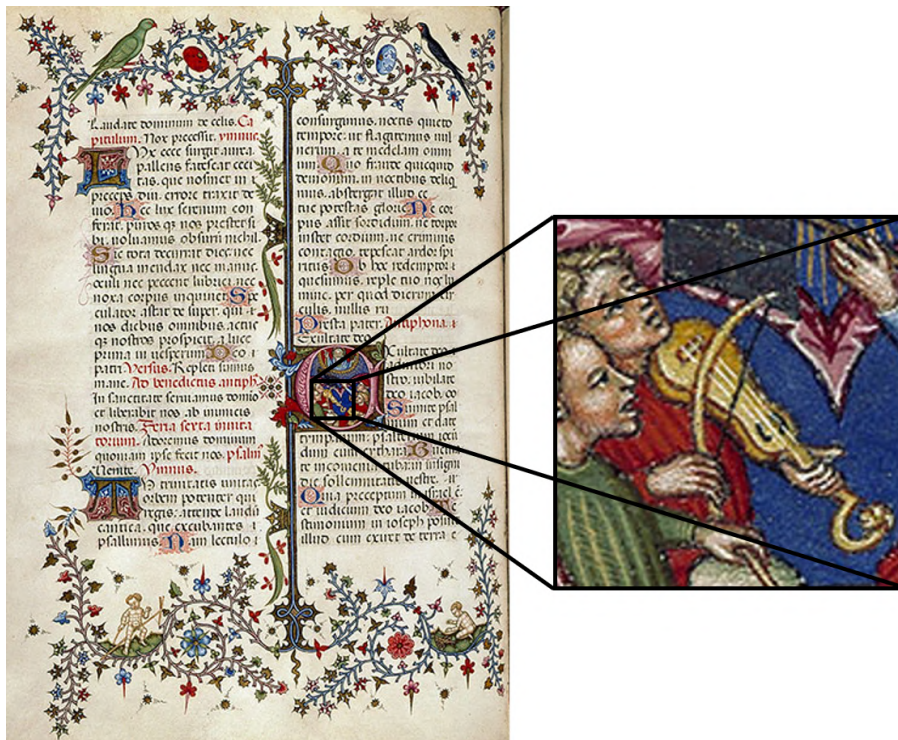 Laudate dominum de celis. Ca
pitulum. Nox precessit. ymnus.
Lux ecce surgit aurea
pallens fatescat ceci
tas. que nosmet in
preceps diu errore traxit de
uio. Hec lux serenum con
ferat. puros q nos prestet si
bi. nichil
Sic tota decurrat dies. nec
lingua mendax nec manus
oculi peccent lubrici. nec
noxa corpus inquinet. Spe
culator astat desuper. qui
nos diebus omnibus. actus
q nostros prospicit. a luce
prima in uesperum. Deo
patri Versus. Repleti sumus
mane. Ad benedictus antiph
In sanctitate seruiamus domino
et liberabit nos ab inimicis
nostris. Feria sexta inuita
torium. Adoremus dominum
quoniam ipse fecit nos. psalm
Venite. Ymnus.
Tu trinitatis unitas
orbem potenter qui
regis. attende laudi
cantica. que excubantes
psallimus. Nam lectulo
consurgimus. noctis quieto
tempore. ut flagitemus uul
nerum. a te medelam omni
um Quo fraude quicquid
demonum. in noctibus deliq
mus. abstergat illud ce
tue potestas glorie Ne cor
pus assit sordidum. ne torpor
instet cordium. ne criminis
contagio. tepescat ardor spi
ritus Ob hoc redemptor
quesumus. reple tuo nos lu
mine. per quod dierum cir
culis. nullis ru
Presta pater. Antiphona.
Exultate deo
Exultate deo
adiutori no
stro. iubilate
deo iacob.
Sumite psal
mum et date
tympanum. psalterium iocu
dum cum cythara. Bucina
te in neomenia tuba. in insigni
die sollemnitatis uestre.
Quia preceptum in israel
et iudicium deo iacob. Te
stimonium in ioseph posuit
illud cum exiret de terra e